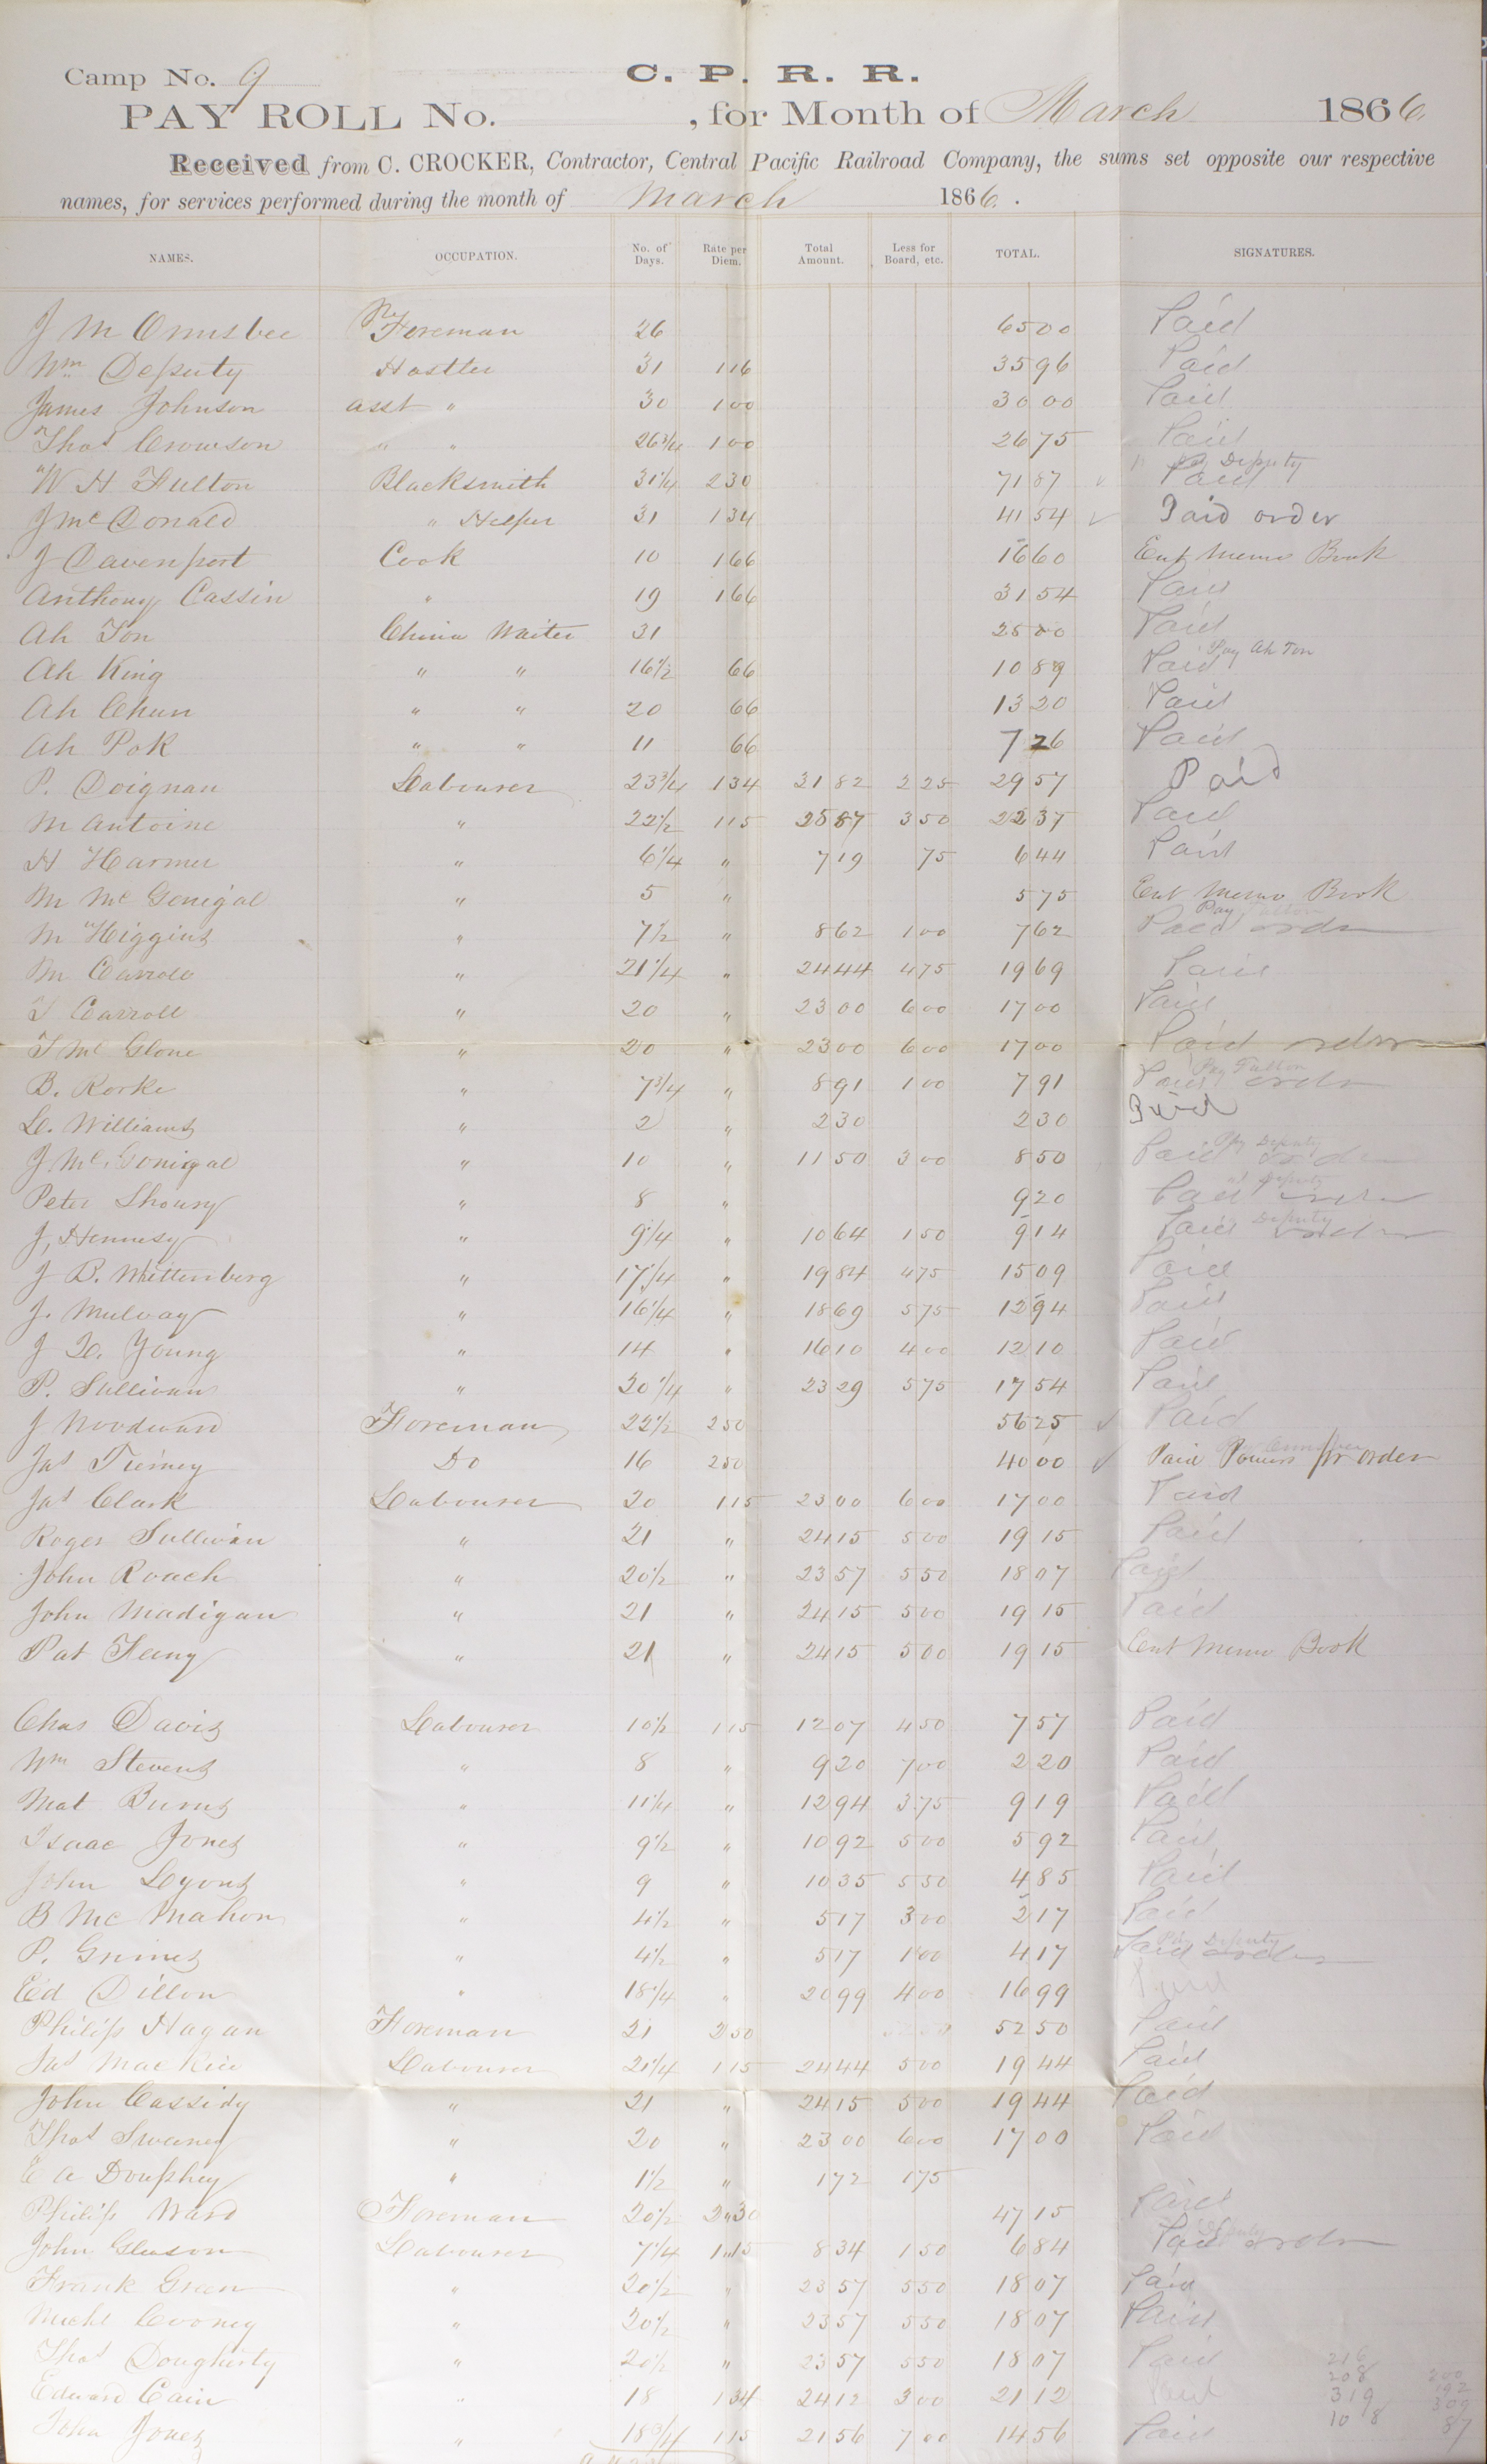 C. P. R. R.
Camp No. 9
PAY ROLL No. , for Month of March 1866
Received from C. CROCKER, Contractor, Central Pacific Railroad Company, the sums set opposite our respective
names, for services performed during the month of March 1866 .
NAMES. OCCUPATION. No. of Days. Rate per Diem. Total Amount. Less for Board, etc. TOTAL. SIGNATURES.
J M Ormsbee Foreman 26 65 00 Paid
Wm Deputy Hostler 31 1 16 35 96 Paid
James Johnson asst " 30 1 00 30 00 Paid
Thos Crowson " " 26 3/4 1 00 26 75 Paid
W H Fulton Blacksmith 31 1/4 2 30 71 87 Paid Deputy
J McDonald " Helper 31 1 34 41 54 Paid order
J Davenport Cook 10 1 66 16 60 Ent Memo Book
Anthony Cassin " 19 1 66 31 54 Paid
Ah Ton China Waiter 31 25 00 Paid
Ah King " " 16 1/2 66 10 89 Paid Pay Ah Ton
Ah Chun " " 20 66 13 20 Paid
Ah Pok " " 11 66 7 26 Paid
P. Doignan Labourer 23 3/4 1 34 31 82 2 25 29 57 Paid
M Antoine " 22 1/2 1 15 25 87 3 50 22 37 Paid
H Harmer " 6 1/4 " 7 19 75 6 44 Paid
M McGonigal " 5 " 5 75 Ent Memo Book
M Higgins " 7 1/2 " 8 62 1 00 7 62 Paid order Pay Fulton
M Carroll " 21 1/4 " 24 44 4 75 19 69 Paid
T Carroll " 20 " 23 00 6 00 17 00 Paid
T McGlone " 20 " 23 00 6 00 17 00 Paid order
B. Rorke " 7 3/4 " 8 91 1 00 7 91 Paid order Pay Fulton
L. Williams " 2 " 2 30 2 30 Paid
J McGonigal " 10 " 11 50 3 00 8 50 Paid order Pay Deputy
Peter Shoury " 8 " 9 20 Paid order Deputy
J, Hennesy " 9 1/4 " 10 64 1 50 9 14 Paid order Deputy
J B. Whittenberg " 17 1/4 " 19 84 4 75 15 09 Paid
J. Mulvay " 16 1/4 " 18 69 5 75 12 94 Paid
J L. Young " 14 " 16 10 4 00 12 10 Paid
P. Sullivan " 20 1/4 " 23 29 5 75 17 54 Paid
J Woodward Foreman 22 1/2 2 50 56 25 Paid
Jas Tierney Do 16 2 50 40 00 Paid Powers pr order
Jas Clark Labourer 20 1 15 23 00 6 00 17 00 Paid
Roger Sullivan " 21 " 24 15 5 00 19 15 Paid
John Roach " 20 1/2 " 23 57 5 50 18 07 Paid
John Madigan " 21 " 24 15 5 00 19 15 Paid
Pat Feeny " 21 " 24 15 5 00 19 15 Ent Memo Book
Chas Davis Labourer 10 1/2 1 15 12 07 4 50 7 57 Paid
Wm Stevens " 8 " 9 20 7 00 2 20 Paid
Mat Burns " 11 1/4 " 12 94 3 75 9 19 Paid
Isaac Jones " 9 1/2 " 10 92 5 00 5 92 Paid
John Lyons " 9 " 10 35 5 50 4 85 Paid
B McMahon " 4 1/2 " 5 17 3 00 2 17 Paid
P. Grimes " 4 1/2 " 5 17 1 00 4 17 Paid order Pay Deputy
Ed Dillon " 18 1/4 " 20 99 4 00 16 99 Paid
Philip Hagan Foreman 21 2 50 52 50 Paid
Jas MacRice Labourer 21 1/4 1 15 24 44 5 00 19 44 Paid
John Cassidy " 21 " 24 15 5 00 19 44 Paid
Thos Sweeney " 20 " 23 00 6 00 17 00 Paid
E A Douphey " 1 1/2 " 1 72 1 75
Philip Ward Foreman 20 1/2 2 30 47 15 Paid
John Gleason Labourer 7 1/4 1 15 8 34 1 50 6 84 Paid order Deputy
Frank Green " 20 1/2 " 23 57 5 50 18 07 Paid
Michl Cooney " 20 1/2 " 23 57 5 50 18 07 Paid
Thos Dougherty " 20 1/2 " 23 57 5 50 18 07 Paid
Edward Cain " 18 1 34 24 12 3 00 21 12 Paid
John Jones " 18 3/4 1 15 21 56 7 00 14 56 Paid
216
208 200
319 192
108 309
87